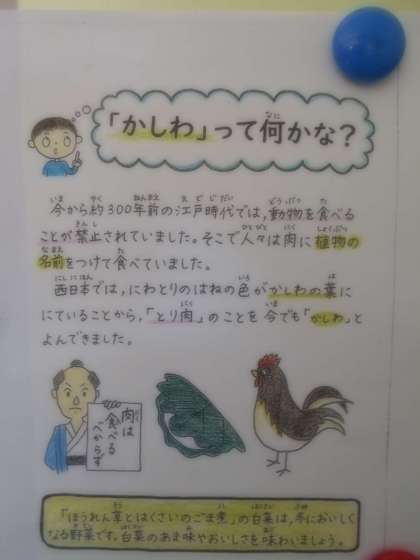 「かしわ」って何かな？
今から約300年前の江戸時代では,動物を食べる
ことが禁止されていました。そこで人々は肉に植物の
名前をつけて食べていました。
西日本では,にわとりのはねの色がかしわの葉に
にていることから,「とり肉」のことを今でも「かしわ」と
よんできました。
肉は
食べる
べからず
「ほうれん草とはくさいのごま煮」の白菜は,冬においしく
なる野菜です。白菜のあま味やおいしさを味わいましょう。